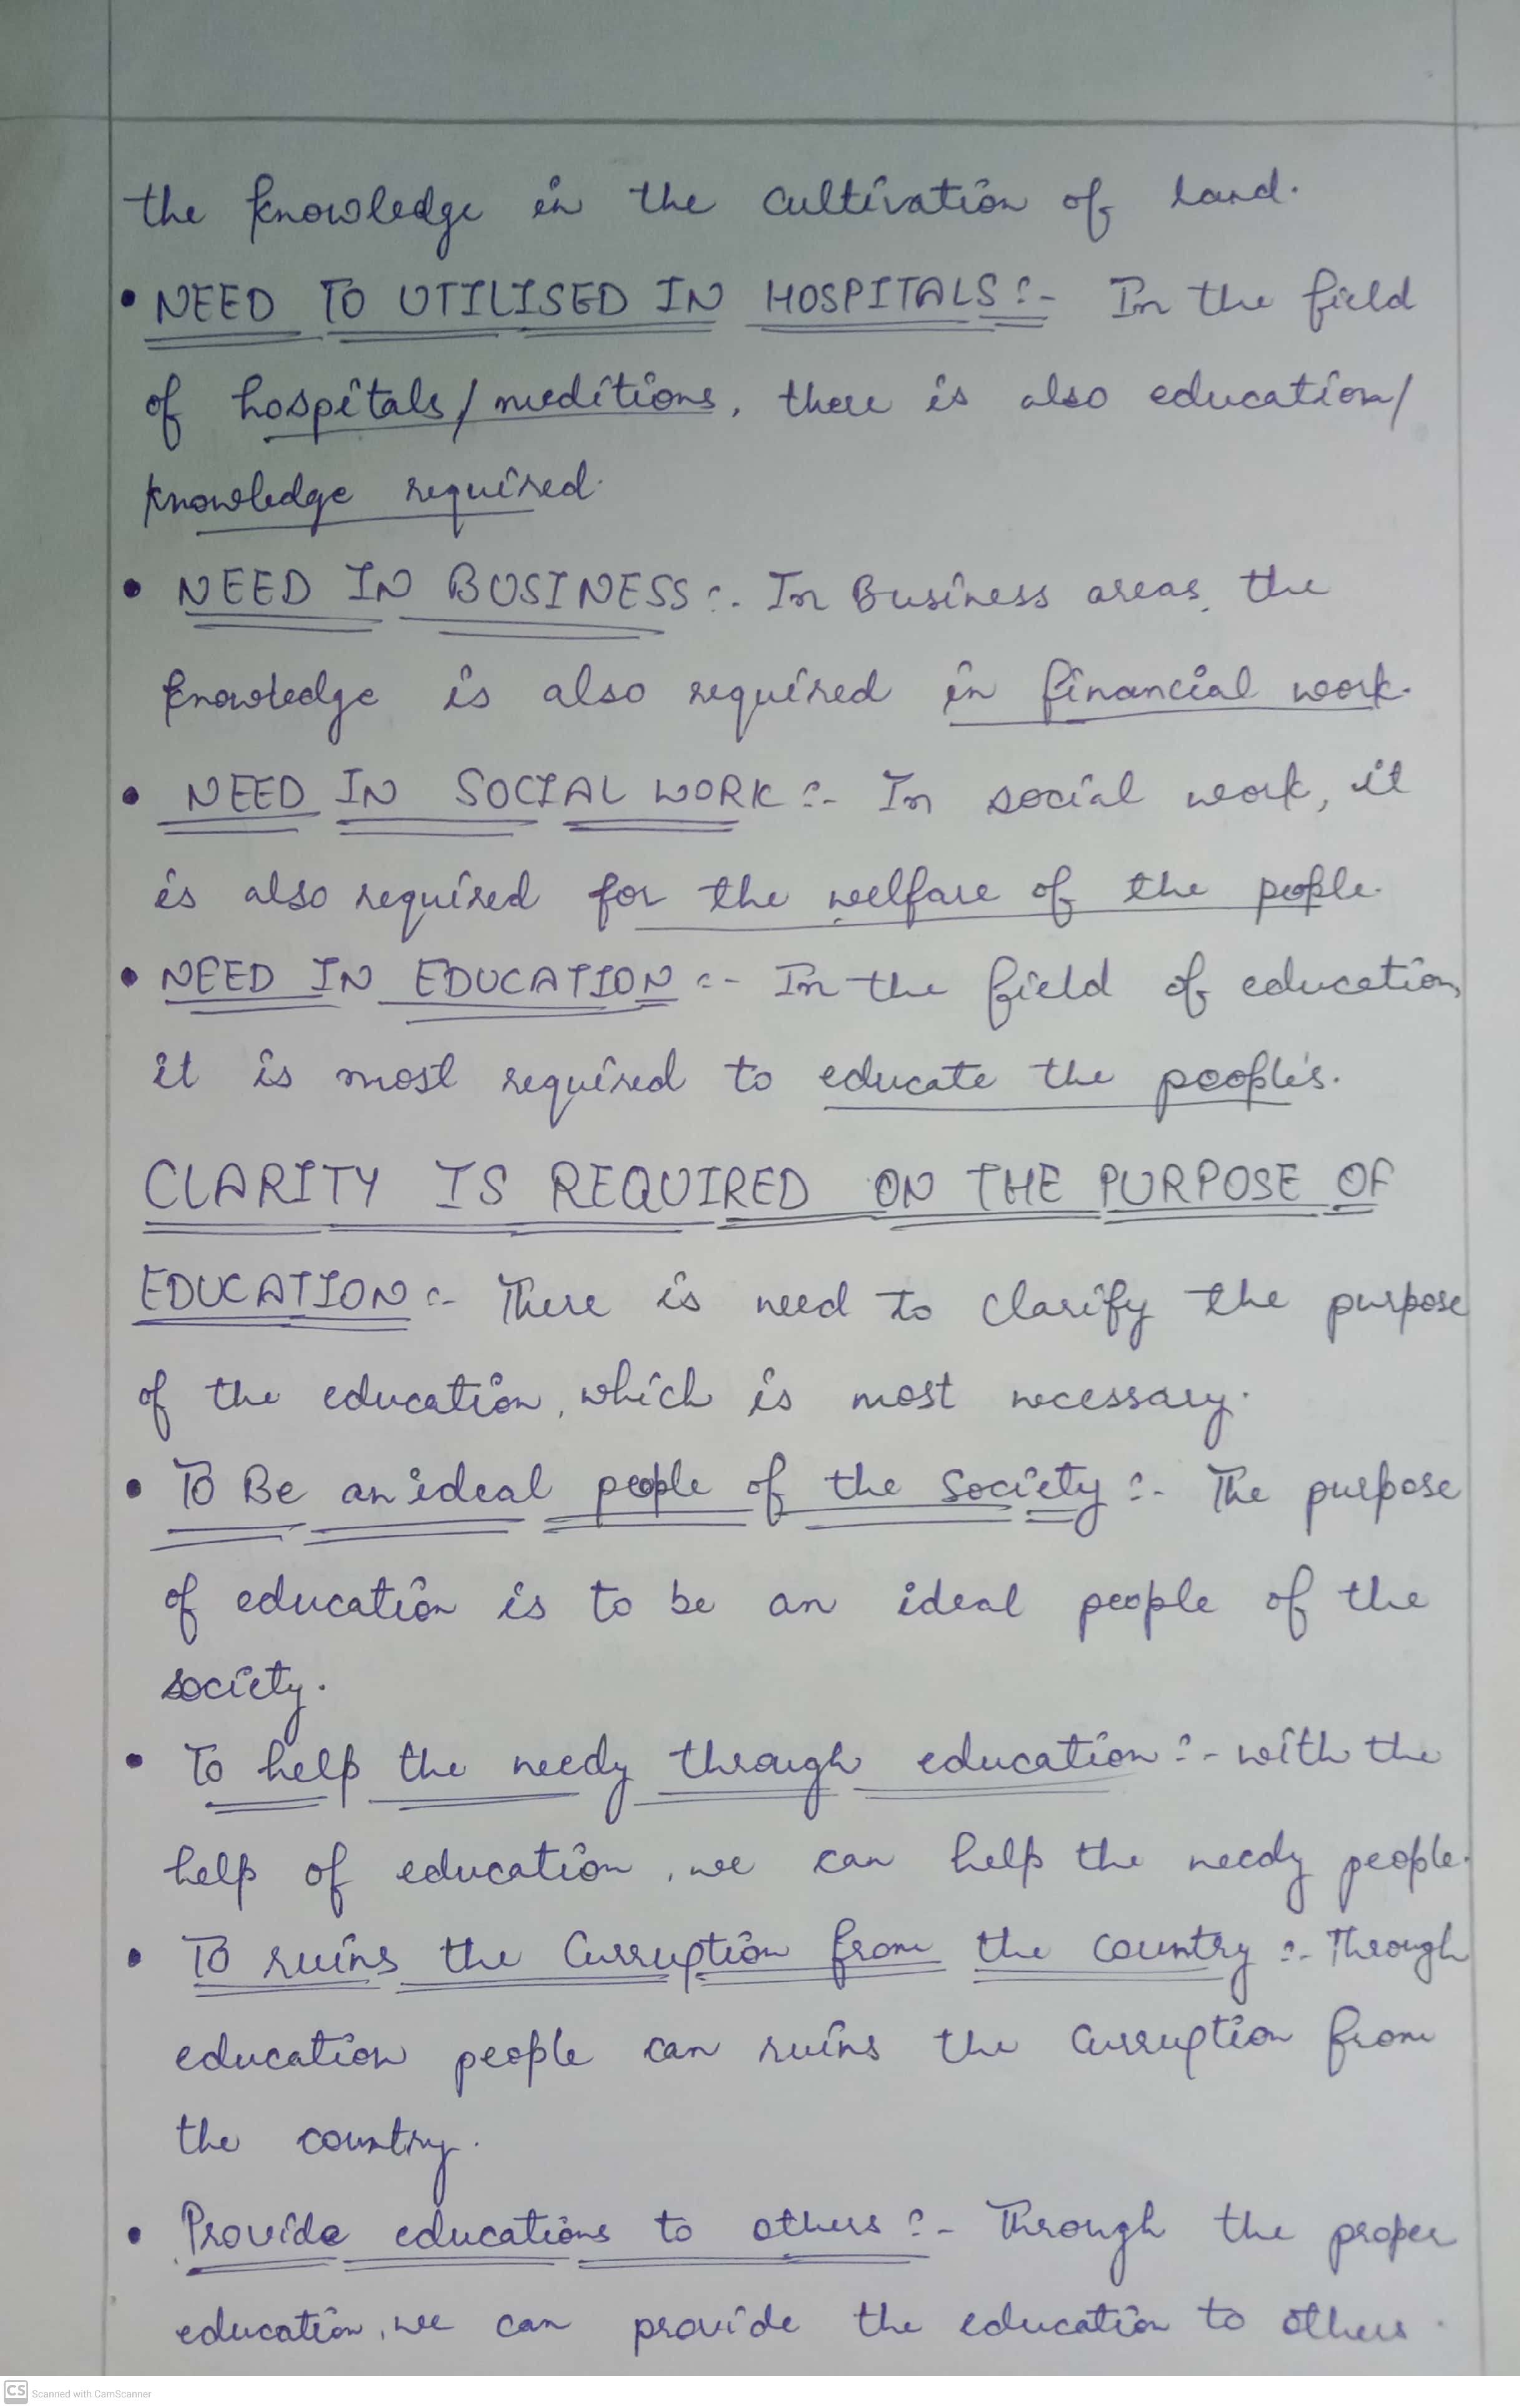 the knowledge in the cultivation of land.
• NEED TO UTILISED IN HOSPITALS :- In the field
of hospitals/meditions, there is also education/
knowledge required.
• NEED IN BUSINESS :- In Business areas, the
knowledge is also required in financial work.
• NEED IN SOCIAL WORK :- In social work, it
is also required for the welfare of the people.
• NEED IN EDUCATION :- In the field of education,
it is most required to educate the people's.
CLARITY IS REQUIRED ON THE PURPOSE OF
EDUCATION :- There is need to clarify the purpose
of the education, which is most necessary.
• To Be an ideal people of the Society :- The purpose
of education is to be an ideal people of the
society.
• To help the needy through education :- with the
help of education, we can help the needy people.
• To ruins the Curruption from the country :- Through
education people can ruins the Curruption from
the country.
• Provide educations to others :- Through the proper
education, we can provide the education to others.
CS Scanned with CamScanner